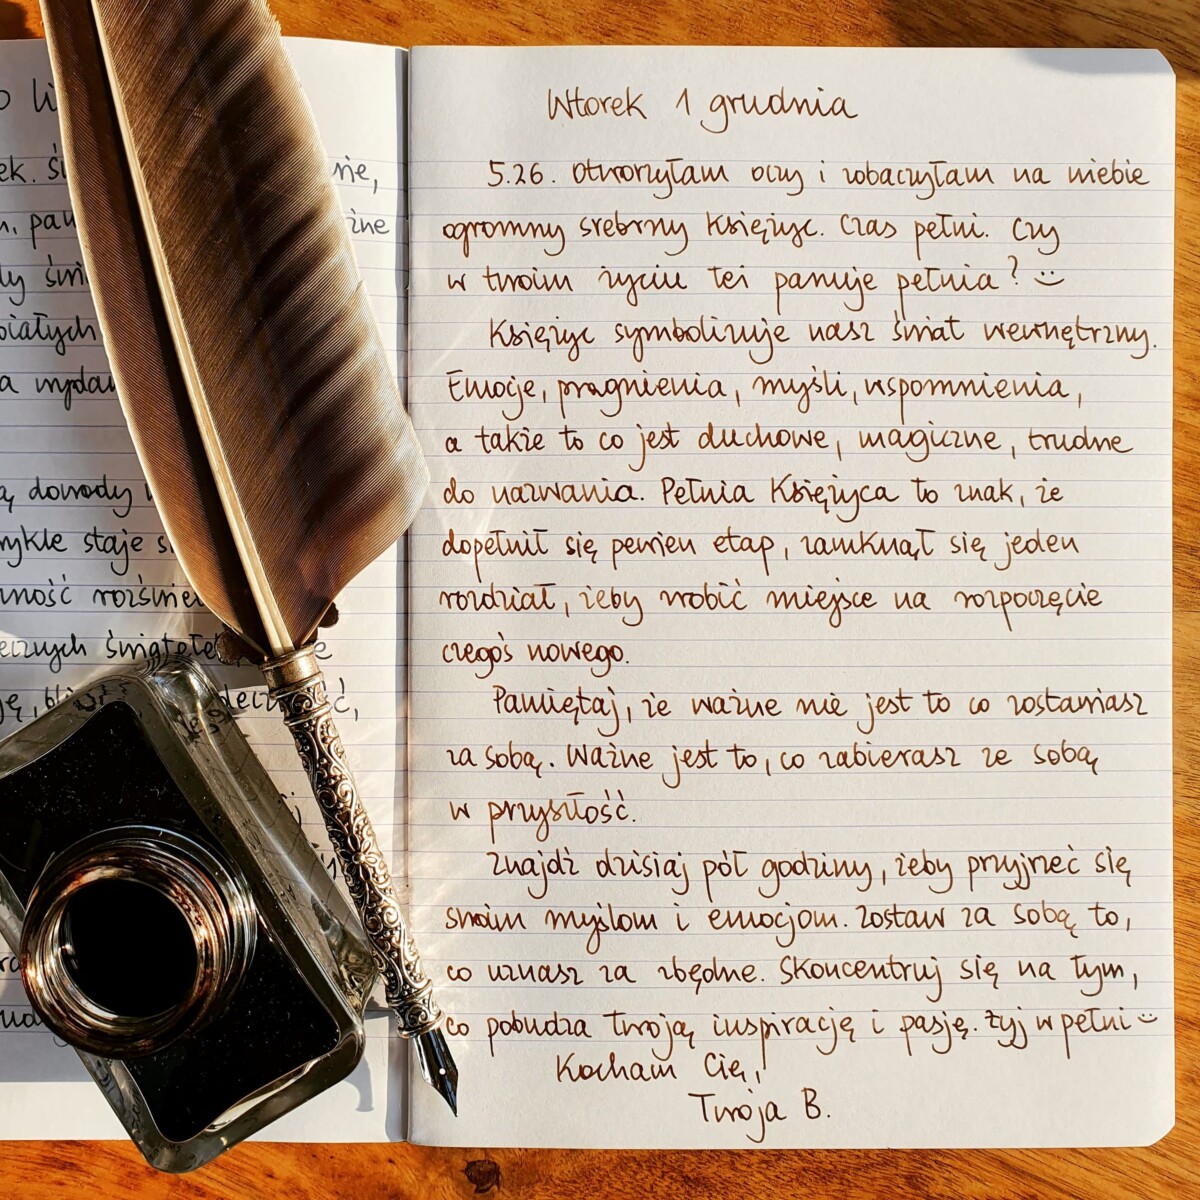 ek.
pau
białych
dowody
ykle staje
ność
Wtorek 1 grudnia
5.26. Otworzyłam oczy i zobaczyłam na niebie
ogromny srebrny Księżyc. Czas pełni. Czy
w twoim życiu też panuje pełnia? :)
Księżyc symbolizuje nasz świat wewnętrzny.
Emocje, pragnienia, myśli, wspomnienia,
a także to co jest duchowe, magiczne, trudne
do nazwania. Pełnia Księżyca to znak, że
dopełnił się pewien etap, zamknął się jeden
rozdział, żeby zrobić miejsce na rozpoczęcie
czegoś nowego.
Pamiętaj, że ważne nie jest to co zostawiasz
za sobą. Ważne jest to, co zabierasz ze sobą
w przyszłość.
Znajdź dzisiaj pół godziny, żeby przyjrzeć się
swoim myślom i emocjom. Zostaw za sobą to,
co uznasz za zbędne. Skoncentruj się na tym,
co pobudza Twoją inspirację i pasję. Żyj w pełni :)
Kocham Cię,
Twoja B.